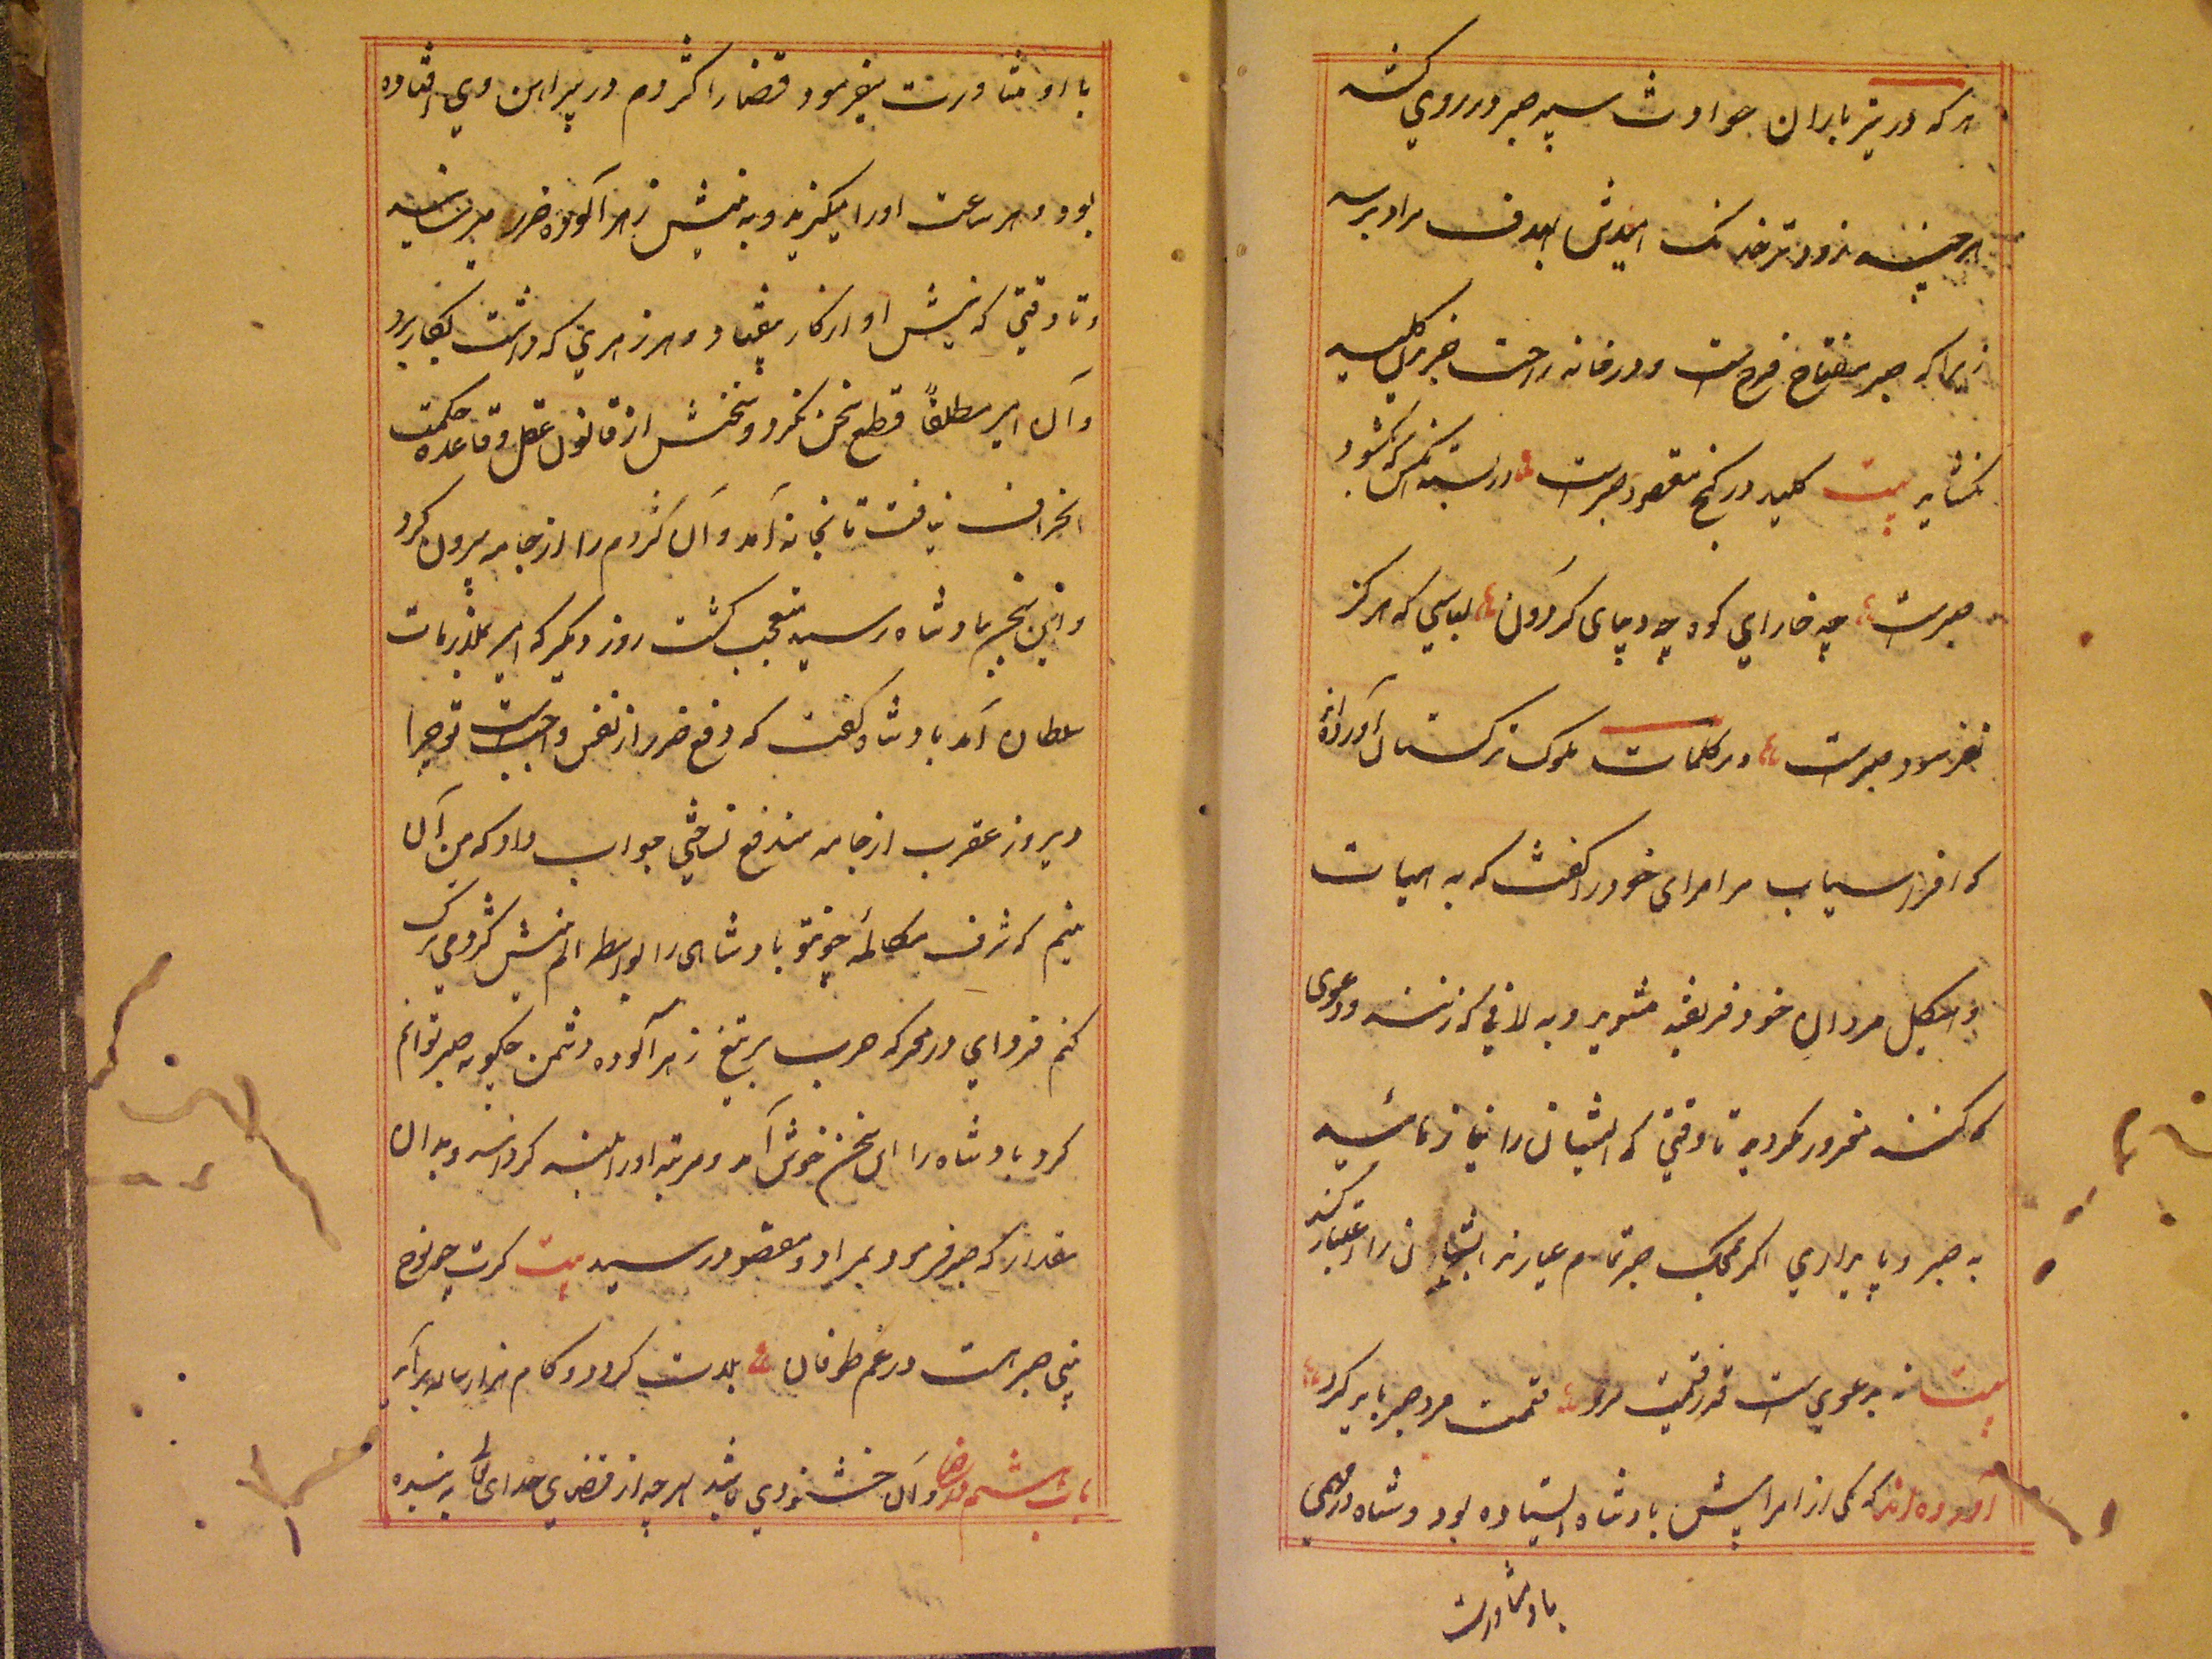 هرکه در تیر باران حوادث سپر صبر در روی کشد
هرچند زودتر خدنگ امیدش بهدف مراد برسد
زیراکه صبر مفتاح فرج است و در خانه راحت جز بدان کلید
نکشاید بیت کلید در گنج مقصود صبر است در بسته آنکس که بکشود
صبر است چه خارای کوه چه دیبای گردون لباسی که هرگز
نفرسود صبر است در کلمات ملوک ترکستان آورده‌اند
که افراسیاب مر امرای خود را گفت که به هیأت
و هیکل مردان خود فریفته مشوید و به لافی که زنند و دعوی
که کنند مغرور مگردید تا وقتی که ایشان را نیازمائید
به صبر و پایداری اگر بمحک صبر تمام عیارند ایشان را اعتبار کنید
بیت نه بدعوی است قدر و قیمت مرد قیمت مرد صبر باید کرد
آورده‌اند که یکی از امرا پیش پادشاه ایستاده بود و شاه در مهمی
با او مشاورت
با او مشاورت میفرمود قضارا کژدم در پیراهن وی افتاده
بود و هر ساعت اورا میگزید و به نیش زهرآلوده ضرر میرسانید
و تا وقتی که نیش او از کار بیفتاد و هر زهری که داشت بکار برد
و آن امیر مطلقاً قطع سخن نکرد و سخنش از قانون عقل و قاعده حکمت
انحراف نیافت تا بخانه آمد و آن کژدم را از جامه بیرون کرد
و این خبر بپادشاه رسید متعجب گشت روز دیگر که امیر بملازمت
سلطان آمد پادشاه گفت که دفع ضرر از نفس واجبست تو چرا
دیروز عقرب از جامه مندفع نساختی جواب داد که من آن
نیم که شرف مکالمه چو تو پادشاهی را بواسطه الم نیش کژدمی ترک
کنم فردای در معرکه حرب بر تیغ زهرآلوده دشمن چگونه صبر توانم
کرد پادشاه را این سخن خوش آمد و مرتبه اورا بلند گردانید و بدان
مقدار که صبر فرمود بمراد و مقصود رسید بیت گرت چو نوح
نبی صبر هست در غم طوفان بلا بگردد و کام هزارساله برآید
باب ششم در رضا و آن خشنودی باشد هرچه از قضای خدای تعالی به بنده